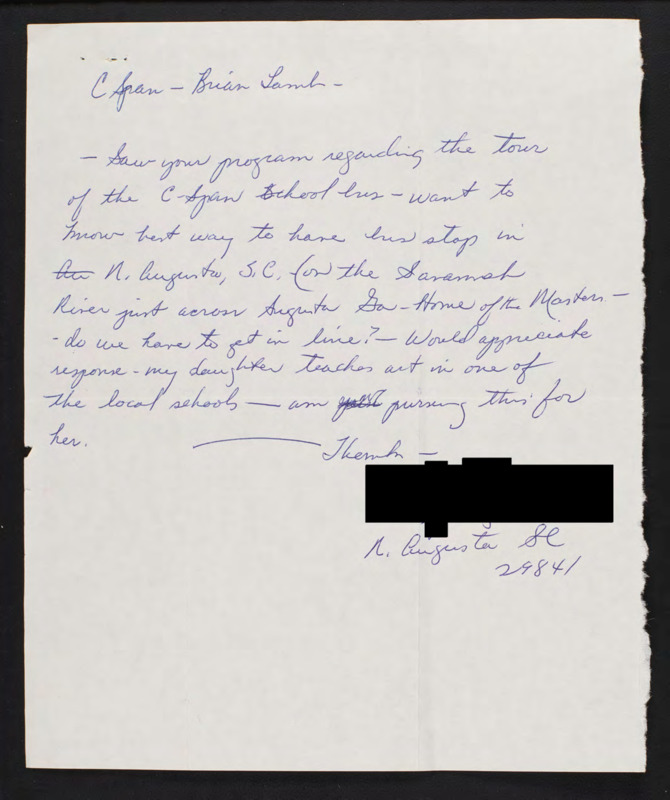 C Span – Brian Lamb –
– Saw your program regarding the tour
of the C-Span School bus – want to
know best way to have bus stop in
N. Augusta, S.C. (on the Savannah
River just across Augusta Ga – Home of the Masters –
- do we have to get in line? – Would appreciate
response - my daughter teaches art in one of
the local schools – am pursuing this for
her.
Thanks –
N. Augusta SC
29841